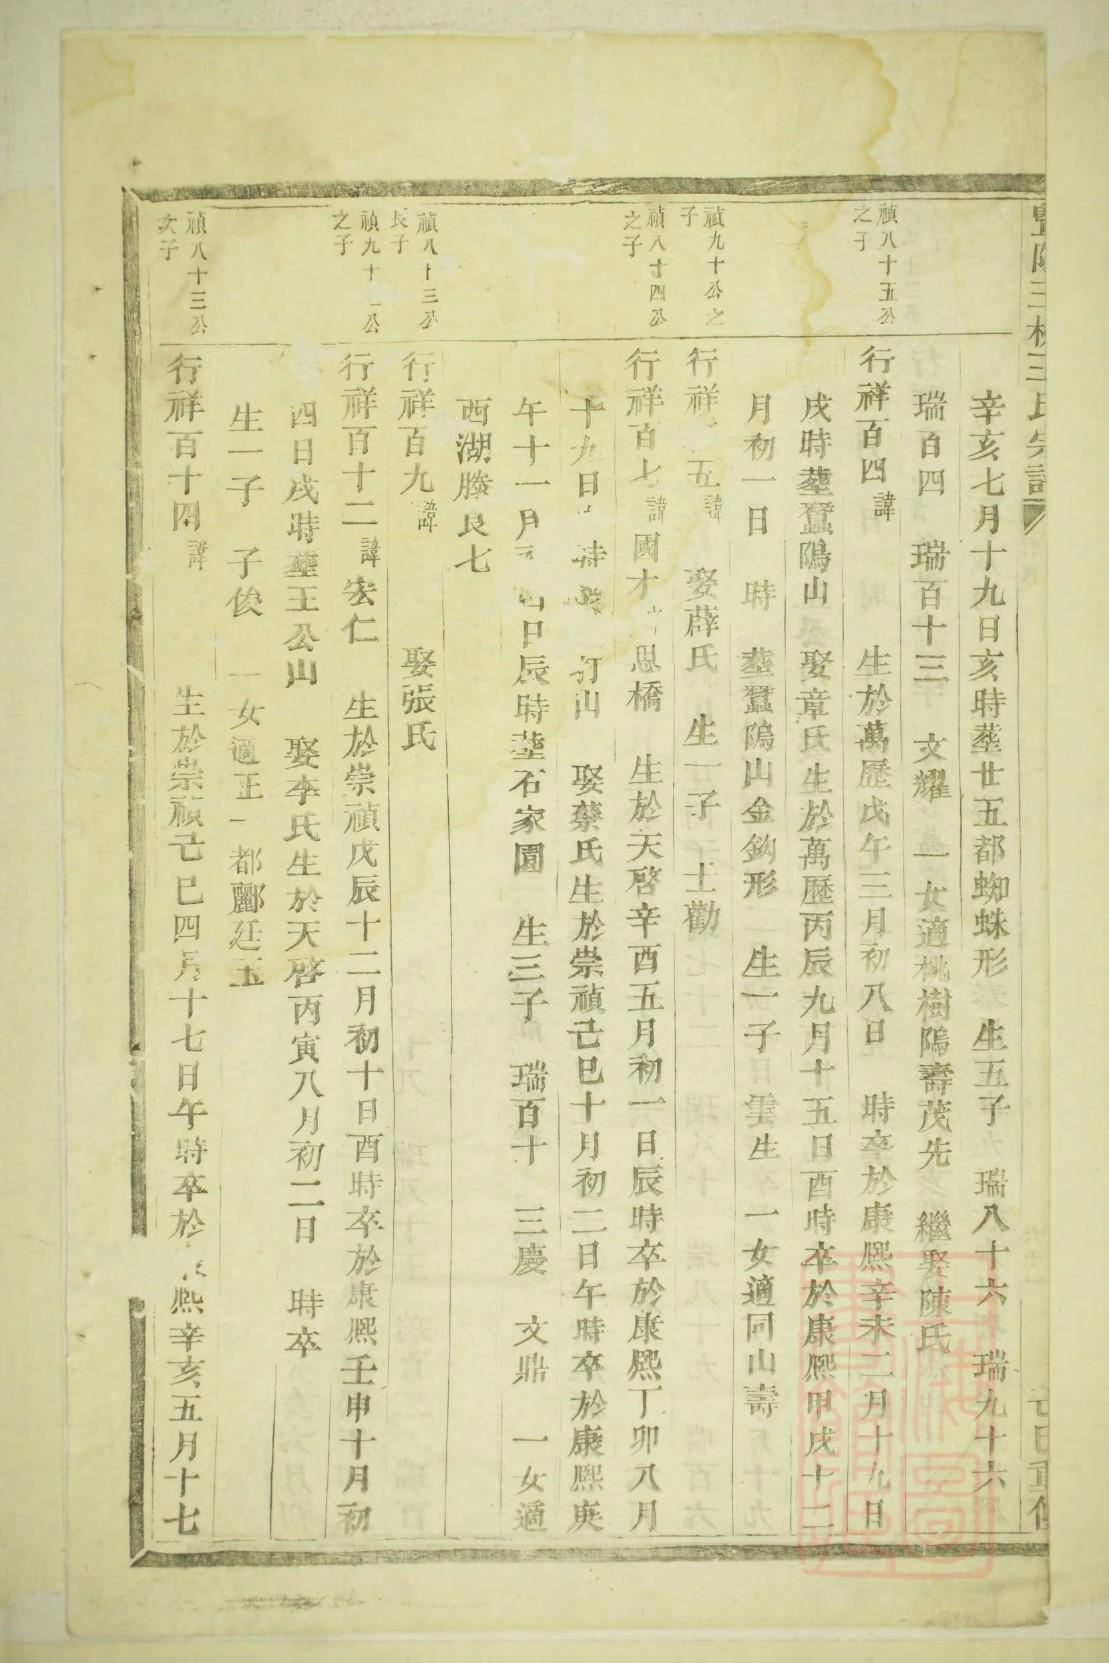 辛亥七月十九日亥時塟廿五都蜘蛛形 生五子 瑞八十六 瑞九十六
瑞百四 瑞百十三 文耀 一女適桃樹隝壽茂先 繼娶陳氏
禎八十五公之子
行祥百四 諱 生於萬歷戊午三月初八日 時卒於康熙辛未二月十九日
戌時塟蠶隝山 娶章氏生於萬歷丙辰九月十五日酉時卒於康熙甲戌十二
月初一日 時 塟蠶隝山金鈎形 生一子 雲生 一女適同山壽
禎九十公之子
行祥 五 諱 娶薛氏 生一子 士勸
禎八十四公之子
行祥百七 諱國才 思橋 生於天啓辛酉五月初一日辰時卒於康熙丁卯八月
十九日 時 山 娶蔡氏生於崇禎己巳十月初二日午時卒於康熙庚
午十一月 日辰時塟石家園 生三子 瑞百十 三慶 文鼎 一女適
西湖滕良七
禎八十三公長子
行祥百九 諱 娶張氏
禎九十 公之子
行祥百十二 諱宏仁 生於崇禎戊辰十二月初十日酉時卒於康熙壬申十月初
四日戌時塟王公山 娶李氏生於天啓丙寅八月初二日 時卒
生一子 子俊 一女適 都酈廷玉
禎八十三公次子
行祥百十四 諱 生於崇禎己巳四月十七日午時卒於 熙辛亥五月十七